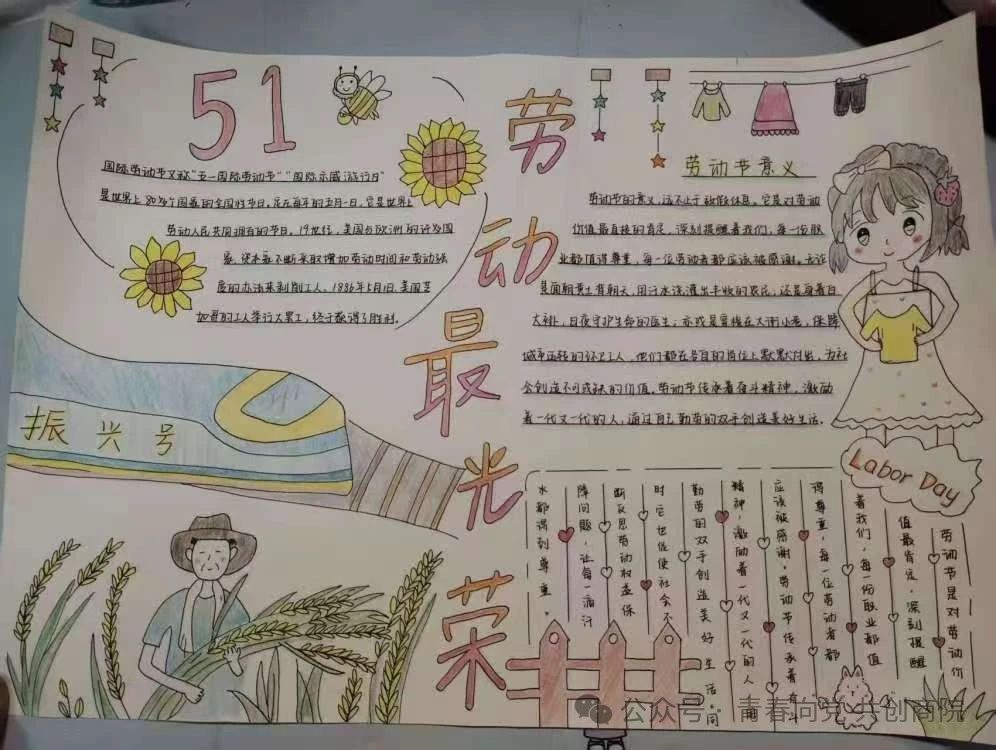 51
劳动最光荣
国际劳动节又称"五一国际劳动节""国际示威游行日"
是世界上80多个国家的全国性节日。定在每年的五月一日。它是世界上
劳动人民共同拥有的节日。19世纪，美国与欧洲的许多国
家，资本家不断采取增加劳动时间和劳动强
度的办法来剥削工人。1886年5月1日，美国芝
加哥的工人举行大罢工，终于取得了胜利。
振兴号
劳动节意义
劳动节的意义，远不止于放假休息。它是对劳动
价值最直接的肯定，深刻提醒着我们，每一份职
业都值得尊重，每一位劳动者都应该被感谢。无论
是面朝黄土背朝天，用汗水浇灌出丰收的农民，还是身着白
大褂，日夜守护生命的医生；亦或是穿梭在大街小巷，保障
城市运转的环卫工人，他们都在各自的岗位上默默付出，为社
会创造不可或缺的价值。劳动节传承着奋斗精神，激励
着一代又一代的人，通过自己勤劳的双手创造美好生活。
Labor Day
劳动节是对劳动价
值最肯定，深刻提醒
着我们，每一份职业都值
得尊重，每一位劳动者都
应该被感谢。劳动节传承着奋斗
精神，激励着一代又一代的人用
勤劳的双手创造美好生活。同
时它也促使社会不
断反思劳动权益保
障问题，让每一滴汗
水都得到尊重。
公众号：青春向党 共创商院